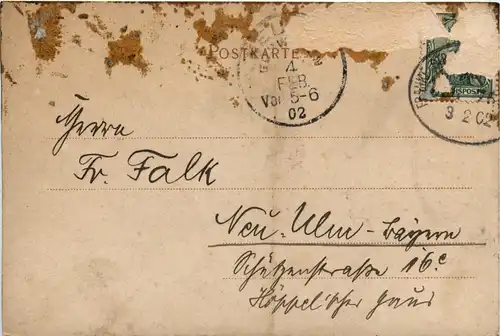 POSTKARTE
4
FEB.
Vor 5-6
02
3 2 02
Herrn
Fr. Falk
Neu-Ulm-Bayern
Schützenstraße 16c
Höppel'scher Haus